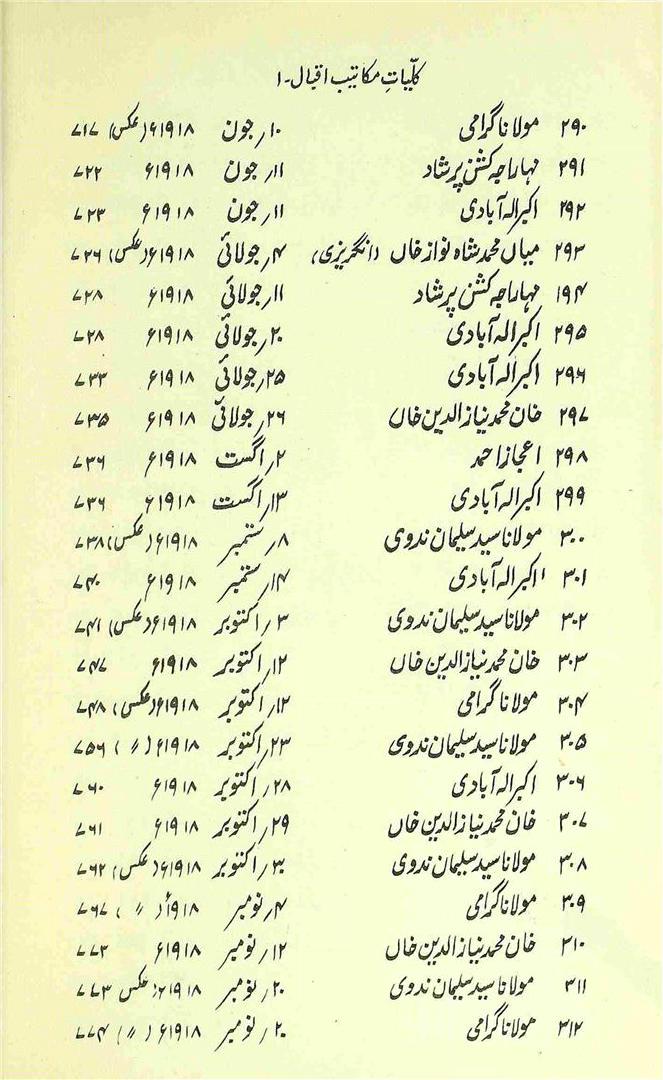 کلّیاتِ مکاتیب اقبال۔۱
۲۹۰ مولانا گرامی ۱۰؍جون ۱۹۱۸ء (عکس) ۷۱۷
۲۹۱ مہاراجہ کشن پرشاد ۱۱؍جون ۱۹۱۸ء ۷۲۲
۲۹۲ اکبر الہ آبادی ۱۱؍جون ۱۹۱۸ء ۷۲۳
۲۹۳ میاں محمد شاہ نواز خاں (انگریزی) ۴؍جولائی ۱۹۱۸ء (عکس) ۷۲۶
۱۹۴ مہاراجہ کشن پرشاد ۱۱؍جولائی ۱۹۱۸ء ۷۲۸
۲۹۵ اکبر الہ آبادی ۲۰؍جولائی ۱۹۱۸ء ۷۲۸
۲۹۶ اکبر الہ آبادی ۲۵؍جولائی ۱۹۱۸ء ۷۳۳
۲۹۷ خان محمد نیاز الدین خاں ۲۶؍جولائی ۱۹۱۸ء ۷۳۵
۲۹۸ اعجاز احمد ۲؍اگست ۱۹۱۸ء ۷۳۶
۲۹۹ اکبر الہ آبادی ۱۳؍اگست ۱۹۱۸ء ۷۳۶
۳۰۰ مولانا سید سلیمان ندوی ۸؍ستمبر ۱۹۱۸ء (عکس) ۷۳۸
۳۰۱ اکبر الہ آبادی ۱۴؍ستمبر ۱۹۱۸ء ۷۴۰
۳۰۲ مولانا سید سلیمان ندوی ۳؍اکتوبر ۱۹۱۸ء (عکس) ۷۴۱
۳۰۳ خان محمد نیاز الدین خاں ۱۲؍اکتوبر ۱۹۱۸ء ۷۴۷
۳۰۴ مولانا گرامی ۱۲؍اکتوبر ۱۹۱۸ء (عکس) ۷۴۸
۳۰۵ مولانا سید سلیمان ندوی ۲۳؍اکتوبر ۱۹۱۸ء (〃) ۷۵۶
۳۰۶ اکبر الہ آبادی ۲۸؍اکتوبر ۱۹۱۸ء ۷۶۰
۳۰۷ خان محمد نیاز الدین خاں ۲۹؍اکتوبر ۱۹۱۸ء ۷۶۱
۳۰۸ مولانا سید سلیمان ندوی ۳۰؍اکتوبر ۱۹۱۸ء (عکس) ۷۶۲
۳۰۹ مولانا گرامی ۴؍نومبر ۱۹۱۸ء (〃) ۷۶۷
۳۱۰ خان محمد نیاز الدین خاں ۱۲؍نومبر ۱۹۱۸ء ۷۷۳
۳۱۱ مولانا سید سلیمان ندوی ۲۰؍نومبر ۱۹۱۸ء عکس ۷۷۳
۳۱۲ مولانا گرامی ۲۰؍نومبر ۱۹۱۸ء (〃) ۷۷۴